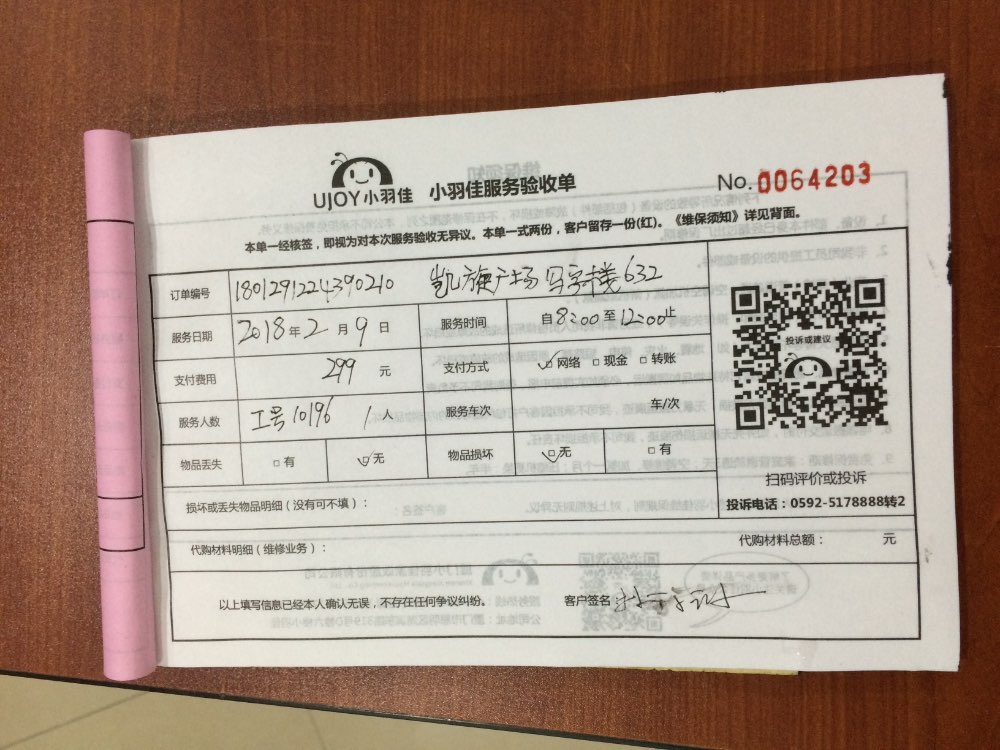 UJOY小羽佳 小羽佳服务验收单 No.0064203
本单一经核签，即视为对本次服务验收无异议。本单一式两份，客户留存一份(红)。《维保须知》详见背面。
订单编号 1801291224390210 凯旋广场写字楼632
服务日期 2018年2月9日 服务时间 自8:00至12:00止
支付费用 299元 支付方式 ☑网络 □现金 □转账
服务人数 工号10196 1人 服务车次 车/次
物品丢失 □有 ☑无 物品损坏 ☑无 □有
投诉或建议
扫码评价或投诉
投诉电话：0592-5178888转2
损坏或丢失物品明细（没有可不填）：
代购材料明细（维修业务）： 代购材料总额： 元
以上填写信息已经本人确认无误，不存在任何争议纠纷。 客户签名